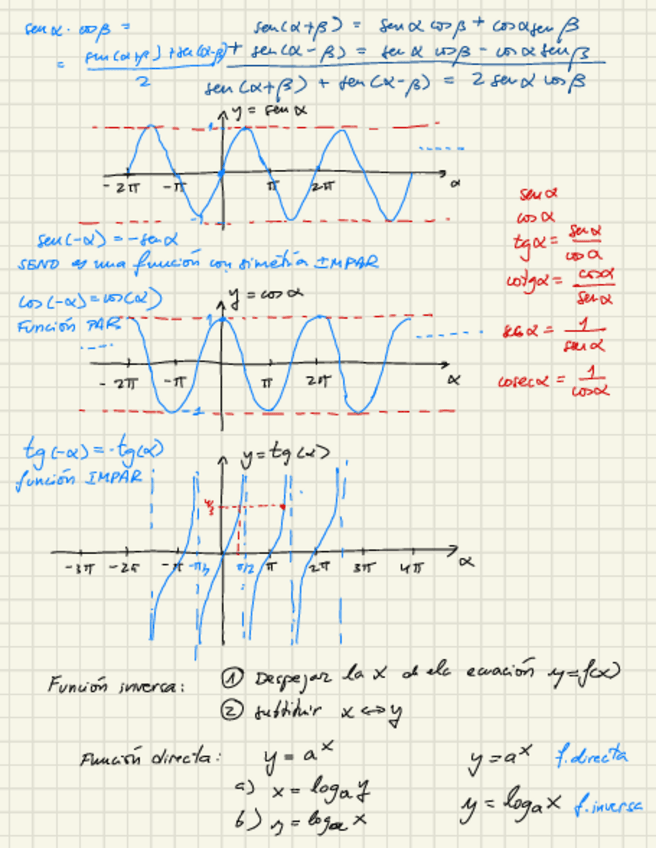 sen α · cos β =
= sen(α+β) + sen(α-β) / 2
sen(α+β) = sen α cos β + cos α sen β
+ sen(α-β) = sen α cos β - cos α sen β
sen(α+β) + sen(α-β) = 2 sen α cos β
y = sen α
1
-2π -π π 2π α
-1
sen(-α) = -sen α
SENO es una función con simetría IMPAR
cos(-α) = cos(α)
Función PAR
y = cos α
1
-2π -π π 2π α
-1
sen α
cos α
tg α = sen α / cos α
cotg α = cos α / sen α
sec α = 1 / sen α
cosec α = 1 / cos α
tg(-α) = -tg(α)
función IMPAR
y = tg(α)
-3π -2π -π -π/2 π/2 π 2π 3π 4π α
Función inversa: ① Despejar la x de la ecuación y=f(x)
② substituir x ↔ y
Función directa: y = a^x
a) x = log_a y
b) y = log_a x
y = a^x f. directa
y = log_a x f. inversa